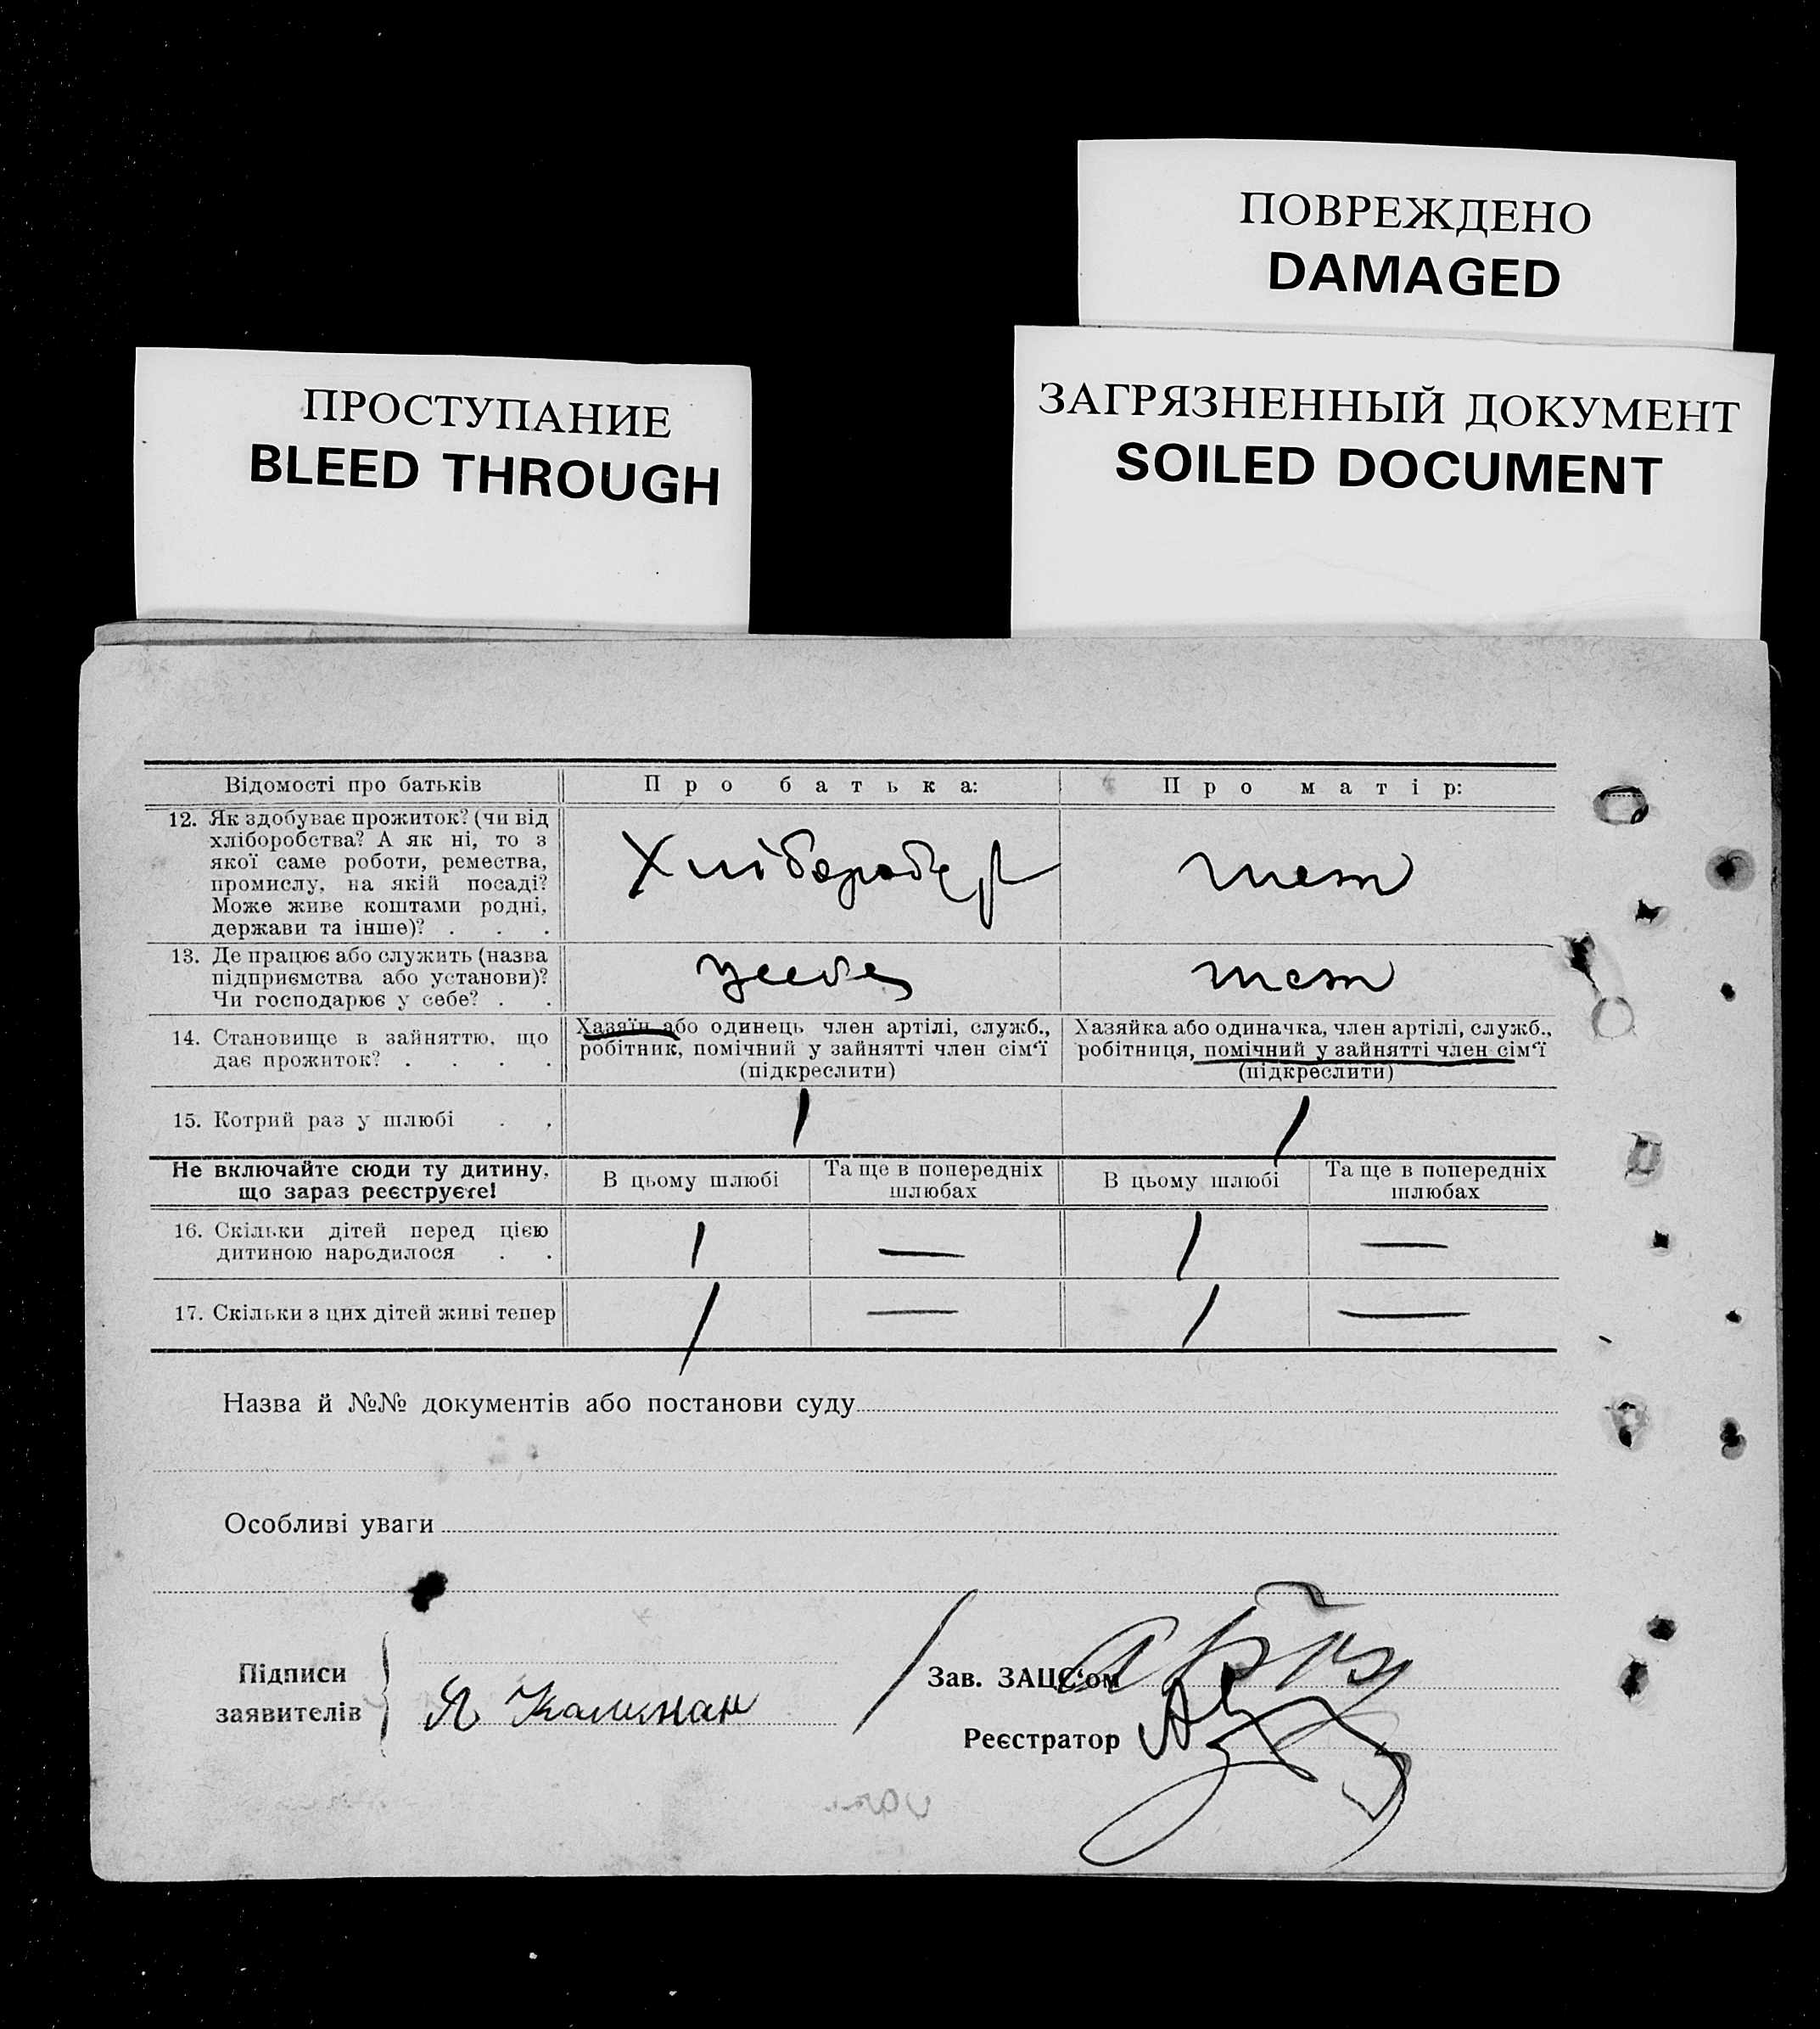 ПОВРЕЖДЕНО
DAMAGED
ПРОСТУПАНИЕ
BLEED THROUGH
ЗАГРЯЗНЕННЫЙ ДОКУМЕНТ
SOILED DOCUMENT
Відомості про батьків
Про батька:
Про матір:
12. Як здобуває прожиток? (чи від
хліборобства? А як ні, то з
якої саме роботи, ремества,
промислу, на якій посаді?
Може живе коштами родні,
держави та інше)? . . .
Хлібороб
теж
13. Де працює або служить (назва
підприємства або установи)?
Чи господарює у себе? . .
у себе
теж
14. Становище в зайняттю, що
дає прожиток? . . . .
Хазяїн або одинець член артілі, служб.,
робітник, помічний у зайнятті член сім'ї
(підкреслити)
Хазяйка або одиначка, член артілі, служб.,
робітниця, помічний у зайнятті член сім'ї
(підкреслити)
15. Котрий раз у шлюбі . .
1
1
Не включайте сюди ту дитину,
що зараз реєструєте!
В цьому шлюбі
Та ще в попередніх
шлюбах
В цьому шлюбі
Та ще в попередніх
шлюбах
16. Скільки дітей перед цією
дитиною народилося . .
1
—
1
—
17. Скільки з цих дітей живі тепер
1
—
1
—
Назва й №№ документів або постанови суду
Особливі уваги
Підписи
заявителів
Зав. ЗАЦС'ом
Реєстратор